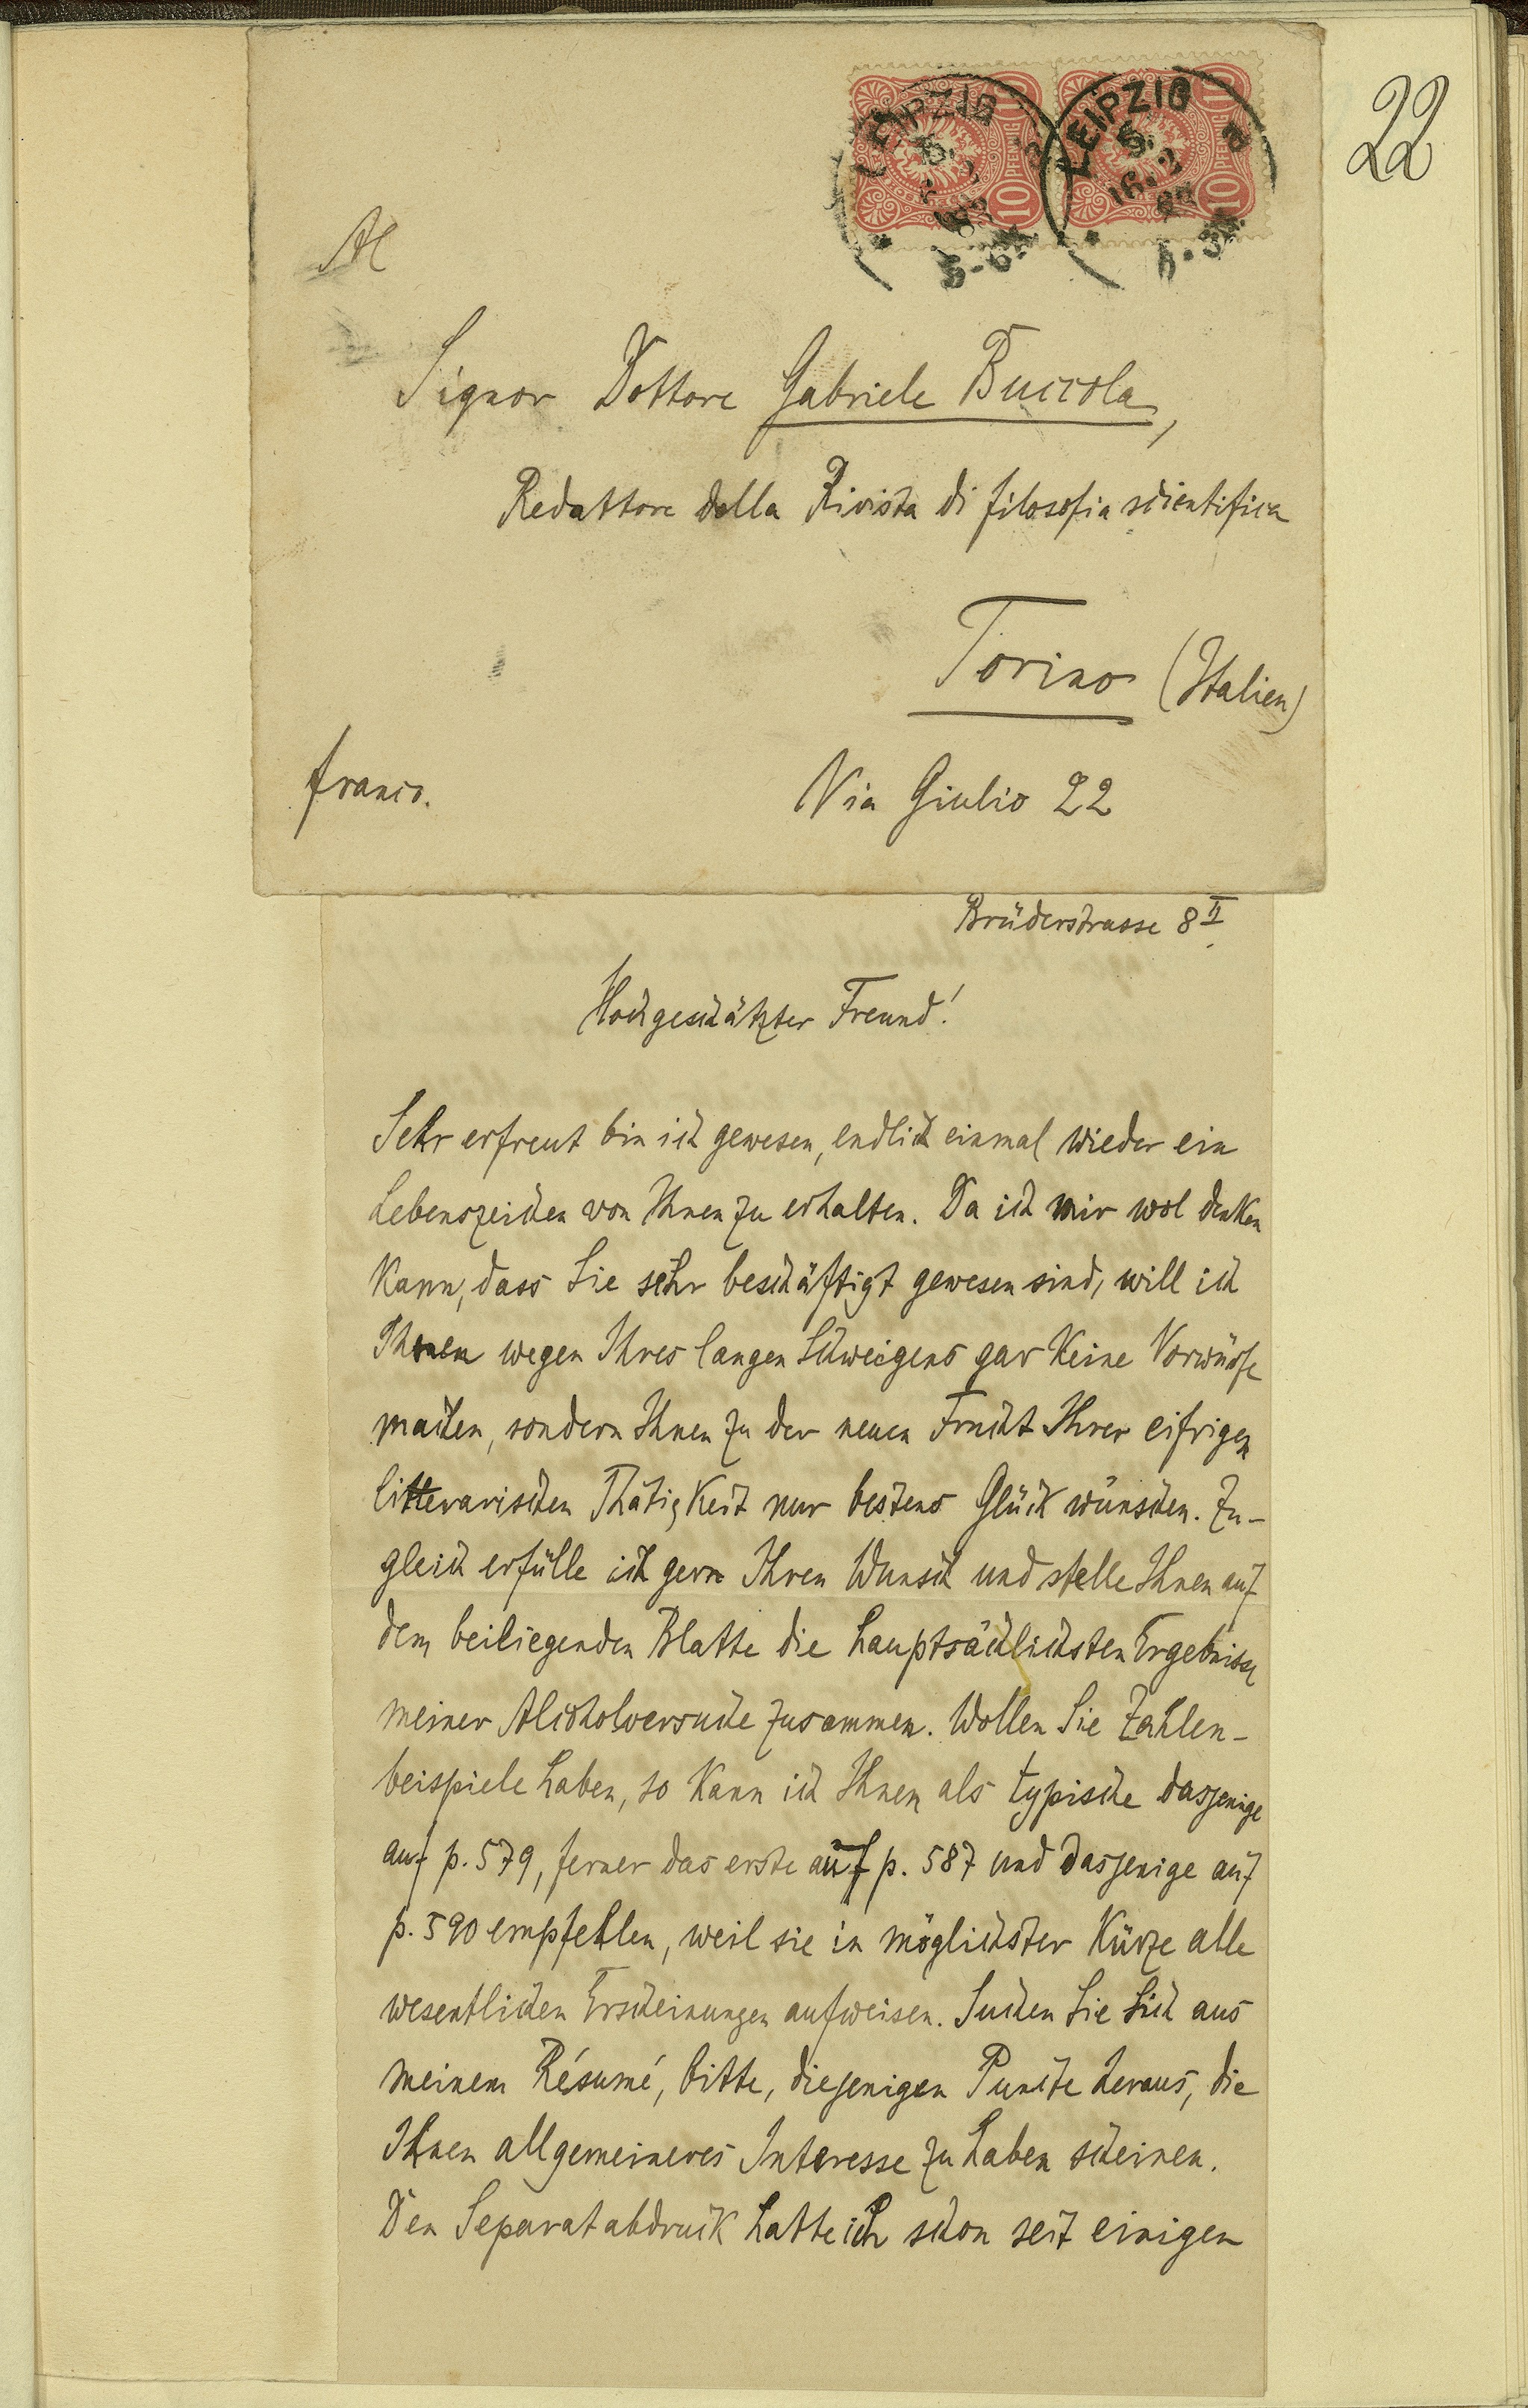 22
LEIPZIG
5.
LEIPZIG
5.
16.2
10 PFENNIG 10
10 PFENNIG 10
Al
Signor Dottore Gabriele Buccola,
Redattore della Rivista di filosofia scientifica
Torino (Italien)
franco.
Via Giulio 22
Brüderstrasse 8 II.
Hochgeschätzter Freund!
Sehr erfreut bin ich gewesen, endlich einmal wieder ein
Lebenszeichen von Ihnen zu erhalten. Da ich mir wol denken
kann, dass Sie sehr beschäftigt gewesen sind, will ich
Ihnen wegen Ihres langen Schweigens gar keine Vorwürfe
machen, sondern Ihnen zu der neuen Frucht Ihrer eifrigen
litterarischen Thätigkeit nur bestens Glück wünschen. Zu-
gleich erfülle ich gern Ihren Wunsch und stelle Ihnen auf
dem beiliegenden Blatte die hauptsächlichsten Ergebnisse
meiner Alcoholversuche zusammen. Wollen Sie Zahlen-
beispiele haben, so kann ich Ihnen als typische dasjenige
auf p. 579, ferner das erste auf p. 587 und dasjenige auf
p. 590 empfehlen, weil sie in möglichster Kürze alle
wesentlichen Erscheinungen aufweisen. Suchen Sie sich aus
meinem Résumé, bitte, diejenigen Puncte heraus, die
Ihnen allgemeineres Interesse zu haben scheinen.
Den Separatabdruck hatte ich schon seit einigen